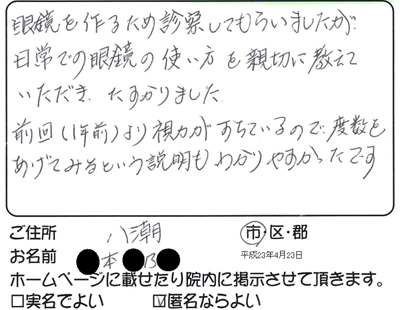 眼鏡を作るため診察してもらいましたが
日常での眼鏡の使い方を親切に教えて
いただき、たすかりました
前回(1年前)より視力がおちているので、度数を
あげてみるという説明もわかりやすかったです
ご住所 八潮 市・区・郡
お名前 ●本●乃● 平成23年4月23日
ホームページに載せたり院内に掲示させて頂きます。
□実名でよい ☑匿名ならよい